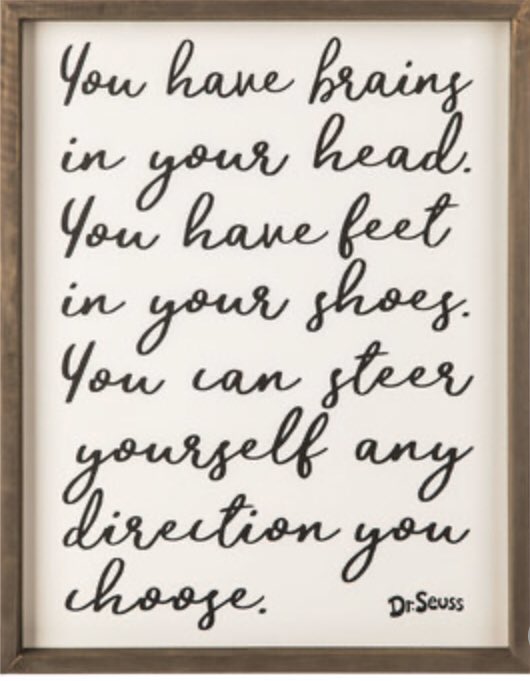 You have brains
in your head.
You have feet
in your shoes.
You can steer
yourself any
direction you
choose.
Dr.Seuss